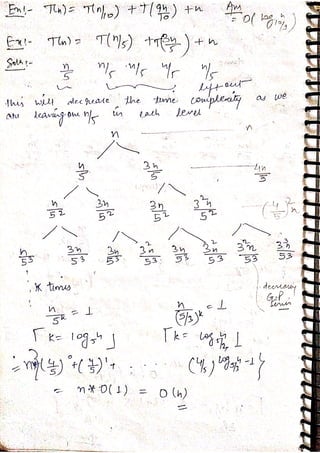 Ex:- T(n) = T(n/10) + T(9n/10) + n Ans = O(log n 10/9)
Ex:- T(n) = T(n/5) + T(3n/5) + n
Soln:- n/5 n/5 n/5 n/5 n/5
left out
this will decrease the time complexity as we
are leaving one n/5 in each level
n n
n/5 3n/5 4n/5
n/5² 3n/5² 3n/5² 3²n/5² (4/5)² n
n/5³ 3n/5³ 3n/5³ 3²n/5³ 3n/5³ 3²n/5³ 3²n/5³ 3³n/5³
decreasing
G.P
series
K times
n/5ᵏ = 1 n/(5/3)ᵏ = 1
⌈k = log₅ n⌋ ⌈k = log 5/3 n⌋
= n*{(4/5)⁰ + (4/5)¹ + (4/5) log 5/3 n -1}
= n * O(1) = O(n)